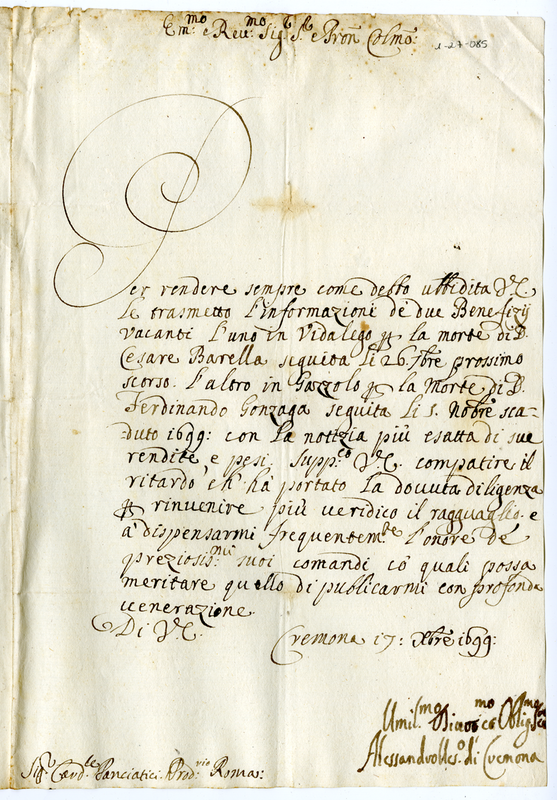 Em.mo e Reu.mo Sig.r S.r e Pron Colmo:
1-27-085
Per rendere sempre come debbo ubbidita V.E.
Le trasmetto l'informazioni de due Benefizij
Vacanti L'uno in Vidalego p la morte di D.
Cesare Barella seguita li 26. 7bre prossimo
scorso. L'altro in Gazzolo p la Morte di D.
Ferdinando Gonzaga seguita li 5. Nobre sca-
duto 1699: con la notizia più esatta di sue
rendite e pesi. Supp.co V.E. compatire il
ritardo, ch' hà portato la douuta diligenza
p rinvenire più veridico il ragguaglio. e
à dispensarmi frequentem.te l'onore de
preziosis.mi suoi comandi co' quali possa
meritare quello di publicarmi con profonda
uenerazione.
Di V.E. Cremona 17: Xbre 1699:
Umil.mo Diuot.mo et Oblig.mo Ser
Alessandro Ves.o di Cremona
Sig.r Card.le Panciatici Prod.rio Roma: